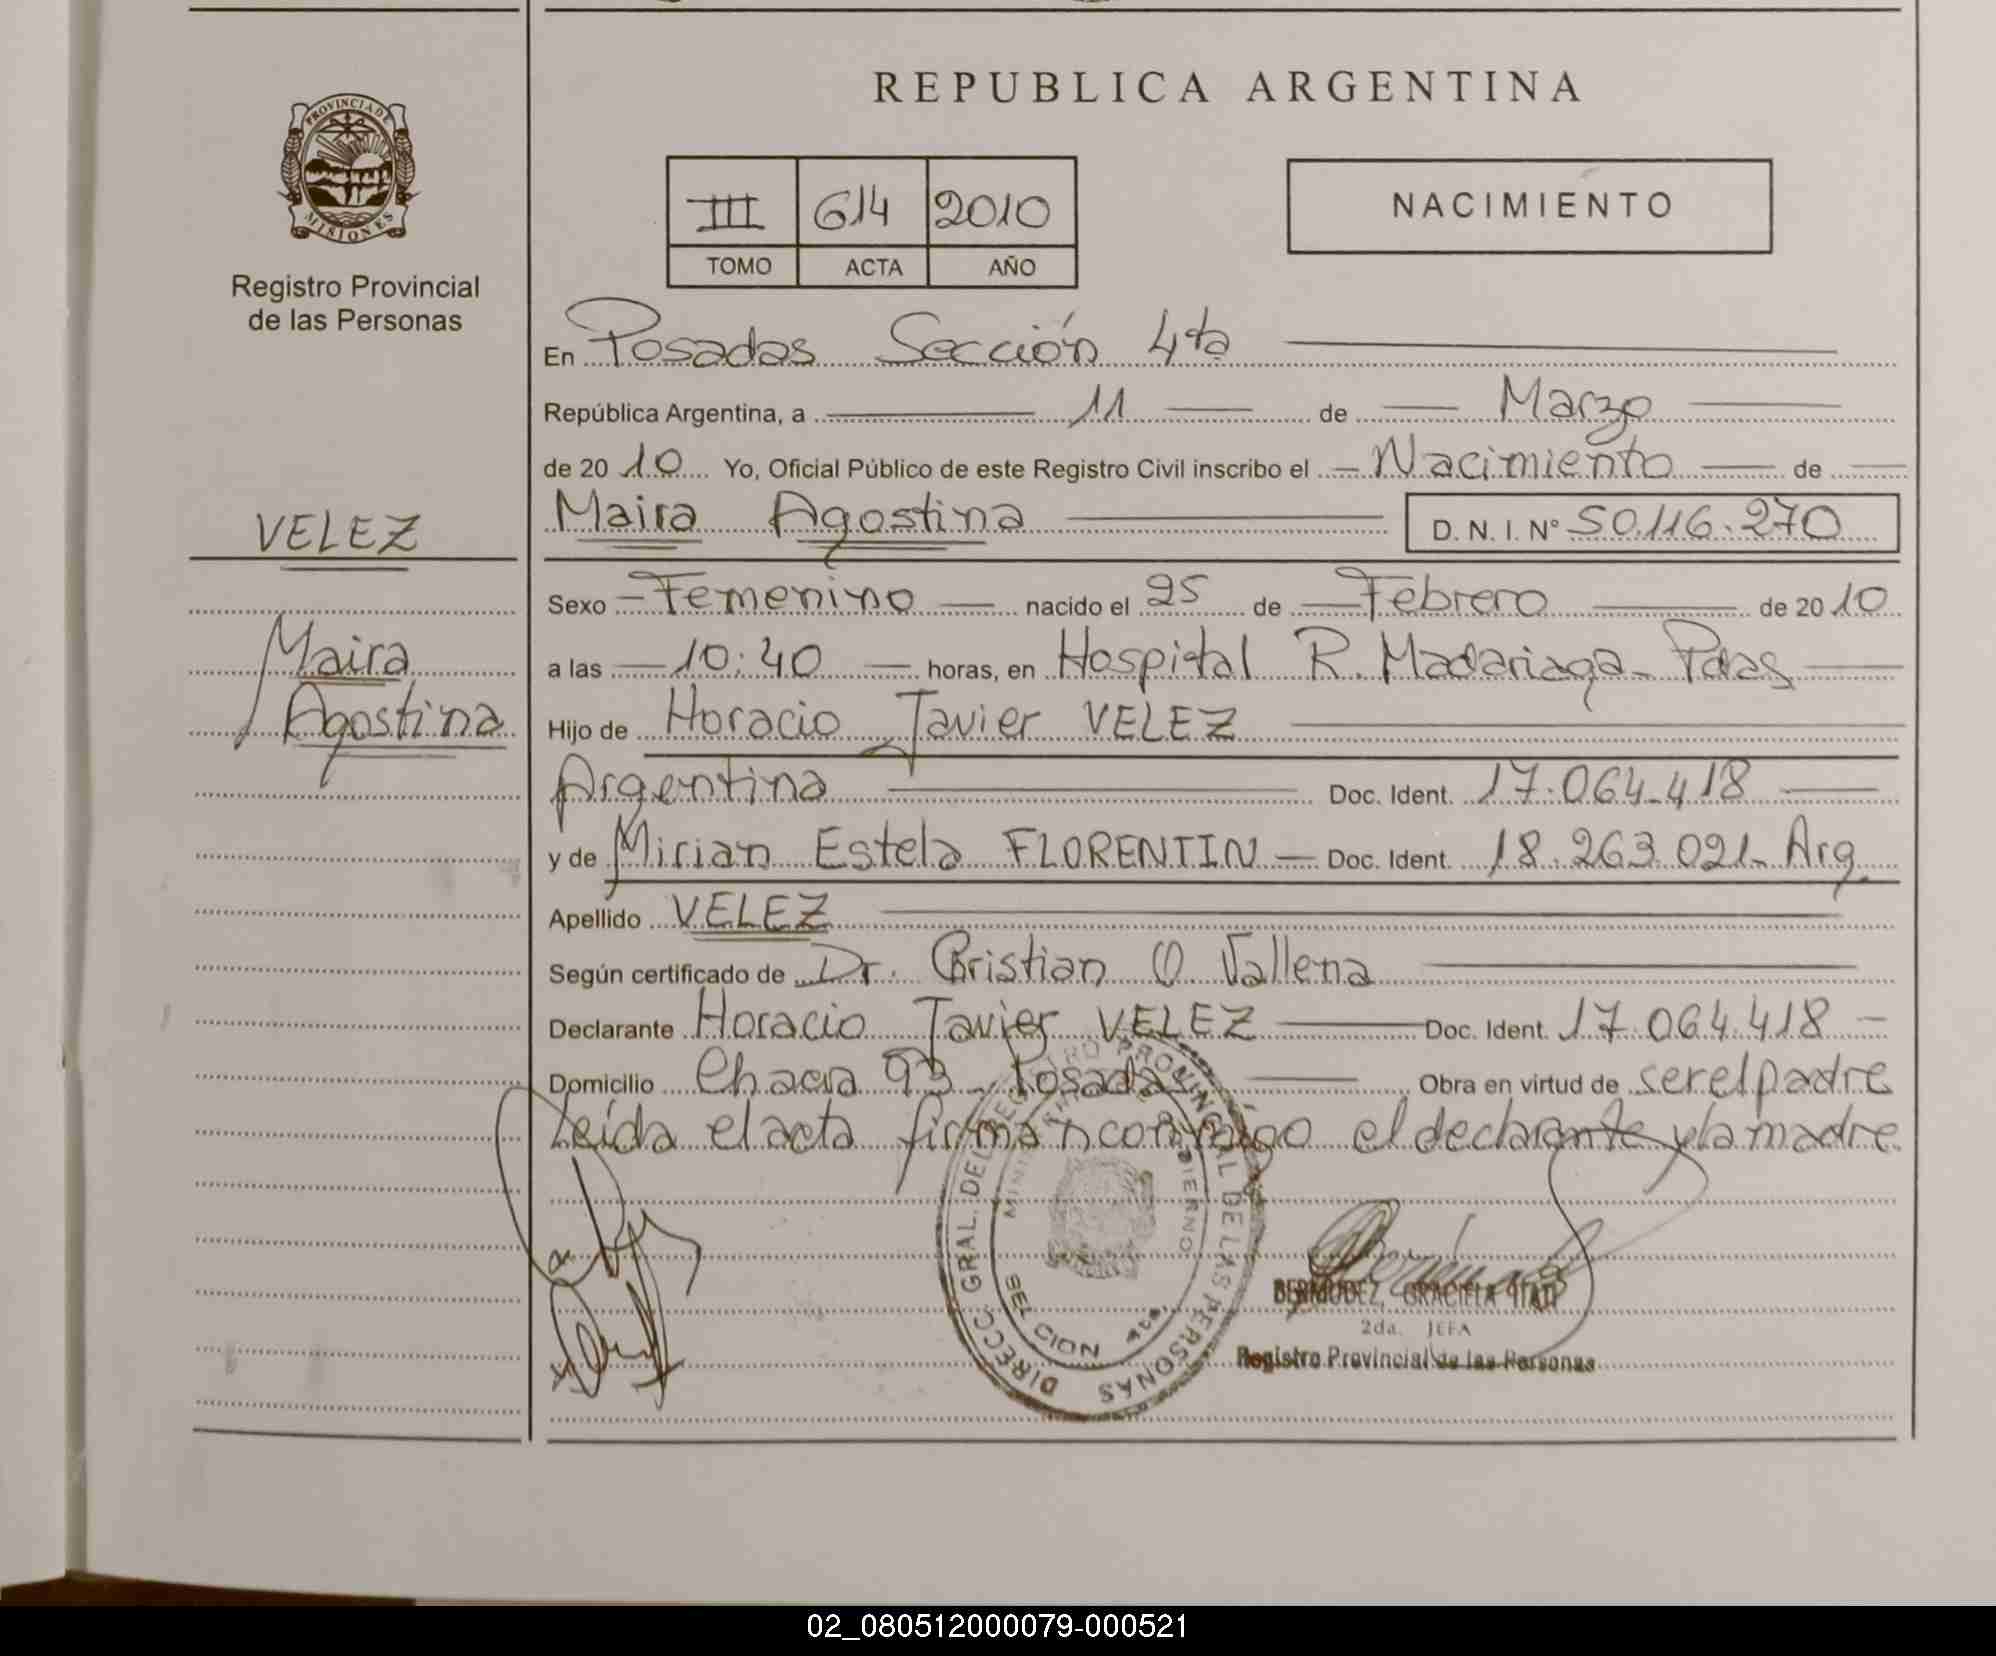 REPUBLICA ARGENTINA
PROVINCIA DE
MISIONES
Registro Provincial
de las Personas
III 614 2010
TOMO ACTA AÑO
NACIMIENTO
En Posadas Sección 4ta
República Argentina, a 11 de Marzo
de 2010 Yo, Oficial Público de este Registro Civil inscribo el Nacimiento de
Maira Agostina D. N. I. N° 50.116.270
VELEZ
Maira
Agostina
Sexo Femenino nacido el 25 de Febrero de 2010
a las 10:40 horas, en Hospital R. Madariaga - Pdas
Hijo de Horacio Javier VELEZ
Argentina Doc. Ident. 17.064.418
y de Mirian Estela FLORENTIN Doc. Ident. 18.263.021 - Arg.
Apellido VELEZ
Según certificado de Dr. Cristian O Vallena
Declarante Horacio Javier VELEZ Doc. Ident. 17.064.418
Domicilio Chacra 93 - Posadas Obra en virtud de ser el padre
Leída el acta firman conmigo el declarante y la madre
DIRECC. GRAL. DEL REGISTRO PROVINCIAL DE LAS PERSONAS
BERMUDEZ, GRACIELA ITATI
2da. JEFA
Registro Provincial de las Personas
02_080512000079-000521